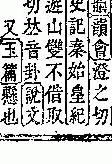 韻會澄之切
史記秦始皇紀
遊山變不借取
切𠀤音卦說文
又玉篇懸也